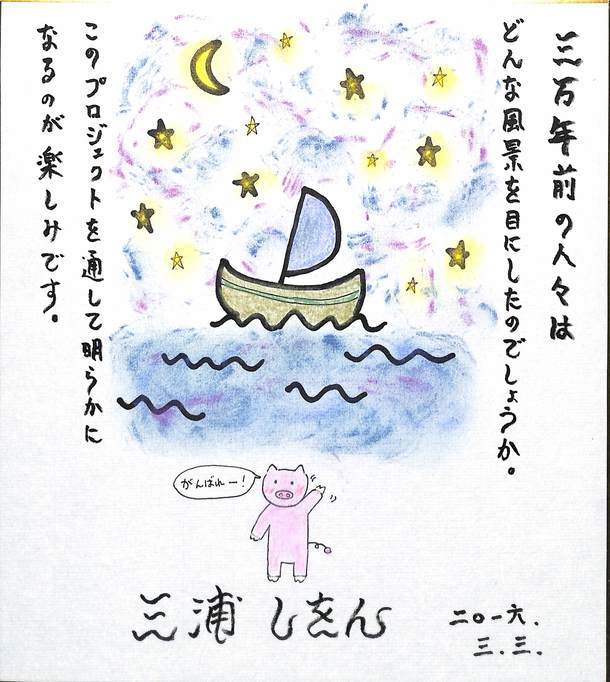 三万年前の人々は
どんな風景を目にしたのでしょうか。
このプロジェクトを通して明らかに
なるのが楽しみです。
がんばれー!
三浦しをん
二〇一六.
三.三.